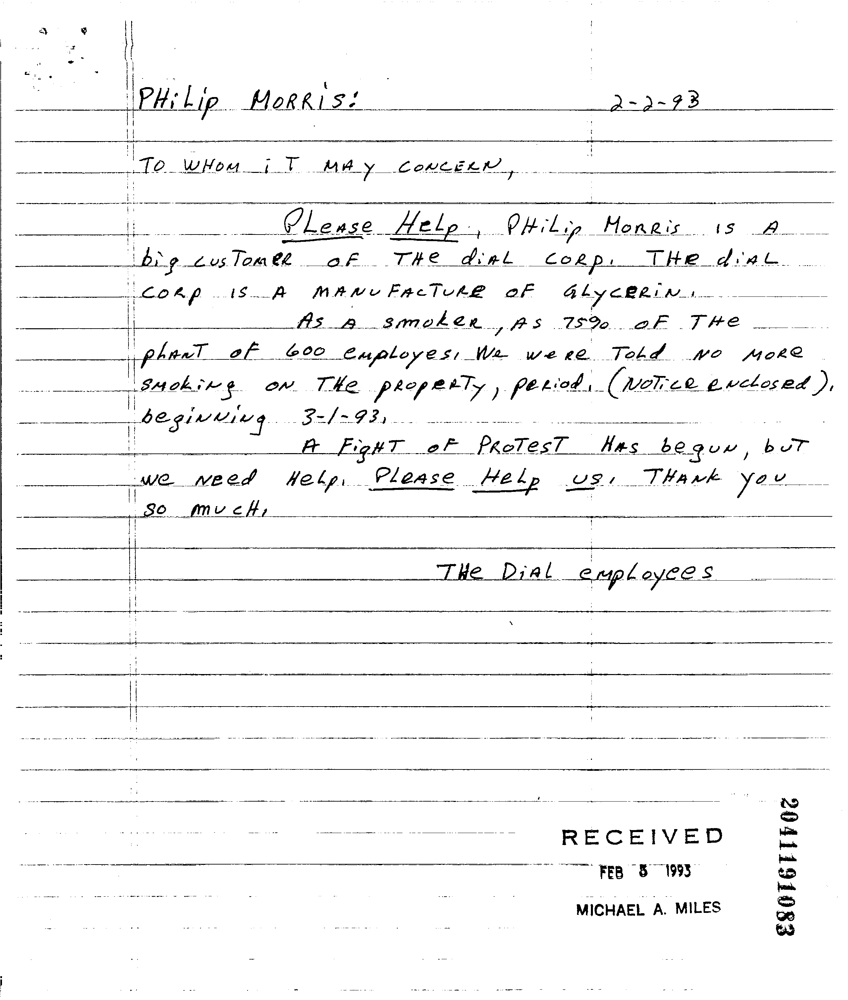 PHiLip MORRis: 2-2-93
TO WHOM iT MAY CONCERN,
PLease Help, PHiLip MORRis is A
big cusTomeR OF THe diAL CORp. THe diAL
CORp is A MANUFACTURe OF GLyceRiN.
As A smokeR, As 75% OF THe
pLANT OF 600 employes, We weRe ToLd NO MORe
smoking ON THe pROpeRTy, peRiod. (NOTice enclosed),
beginning 3-1-93.
A FigHT OF PROTesT HAs beguN, buT
we Need HeLp. PLeAse HeLp us. THANk you
so mucH.
THe DiAL empLoyees
RECEIVED
FEB 5 1993
MICHAEL A. MILES
2041191083